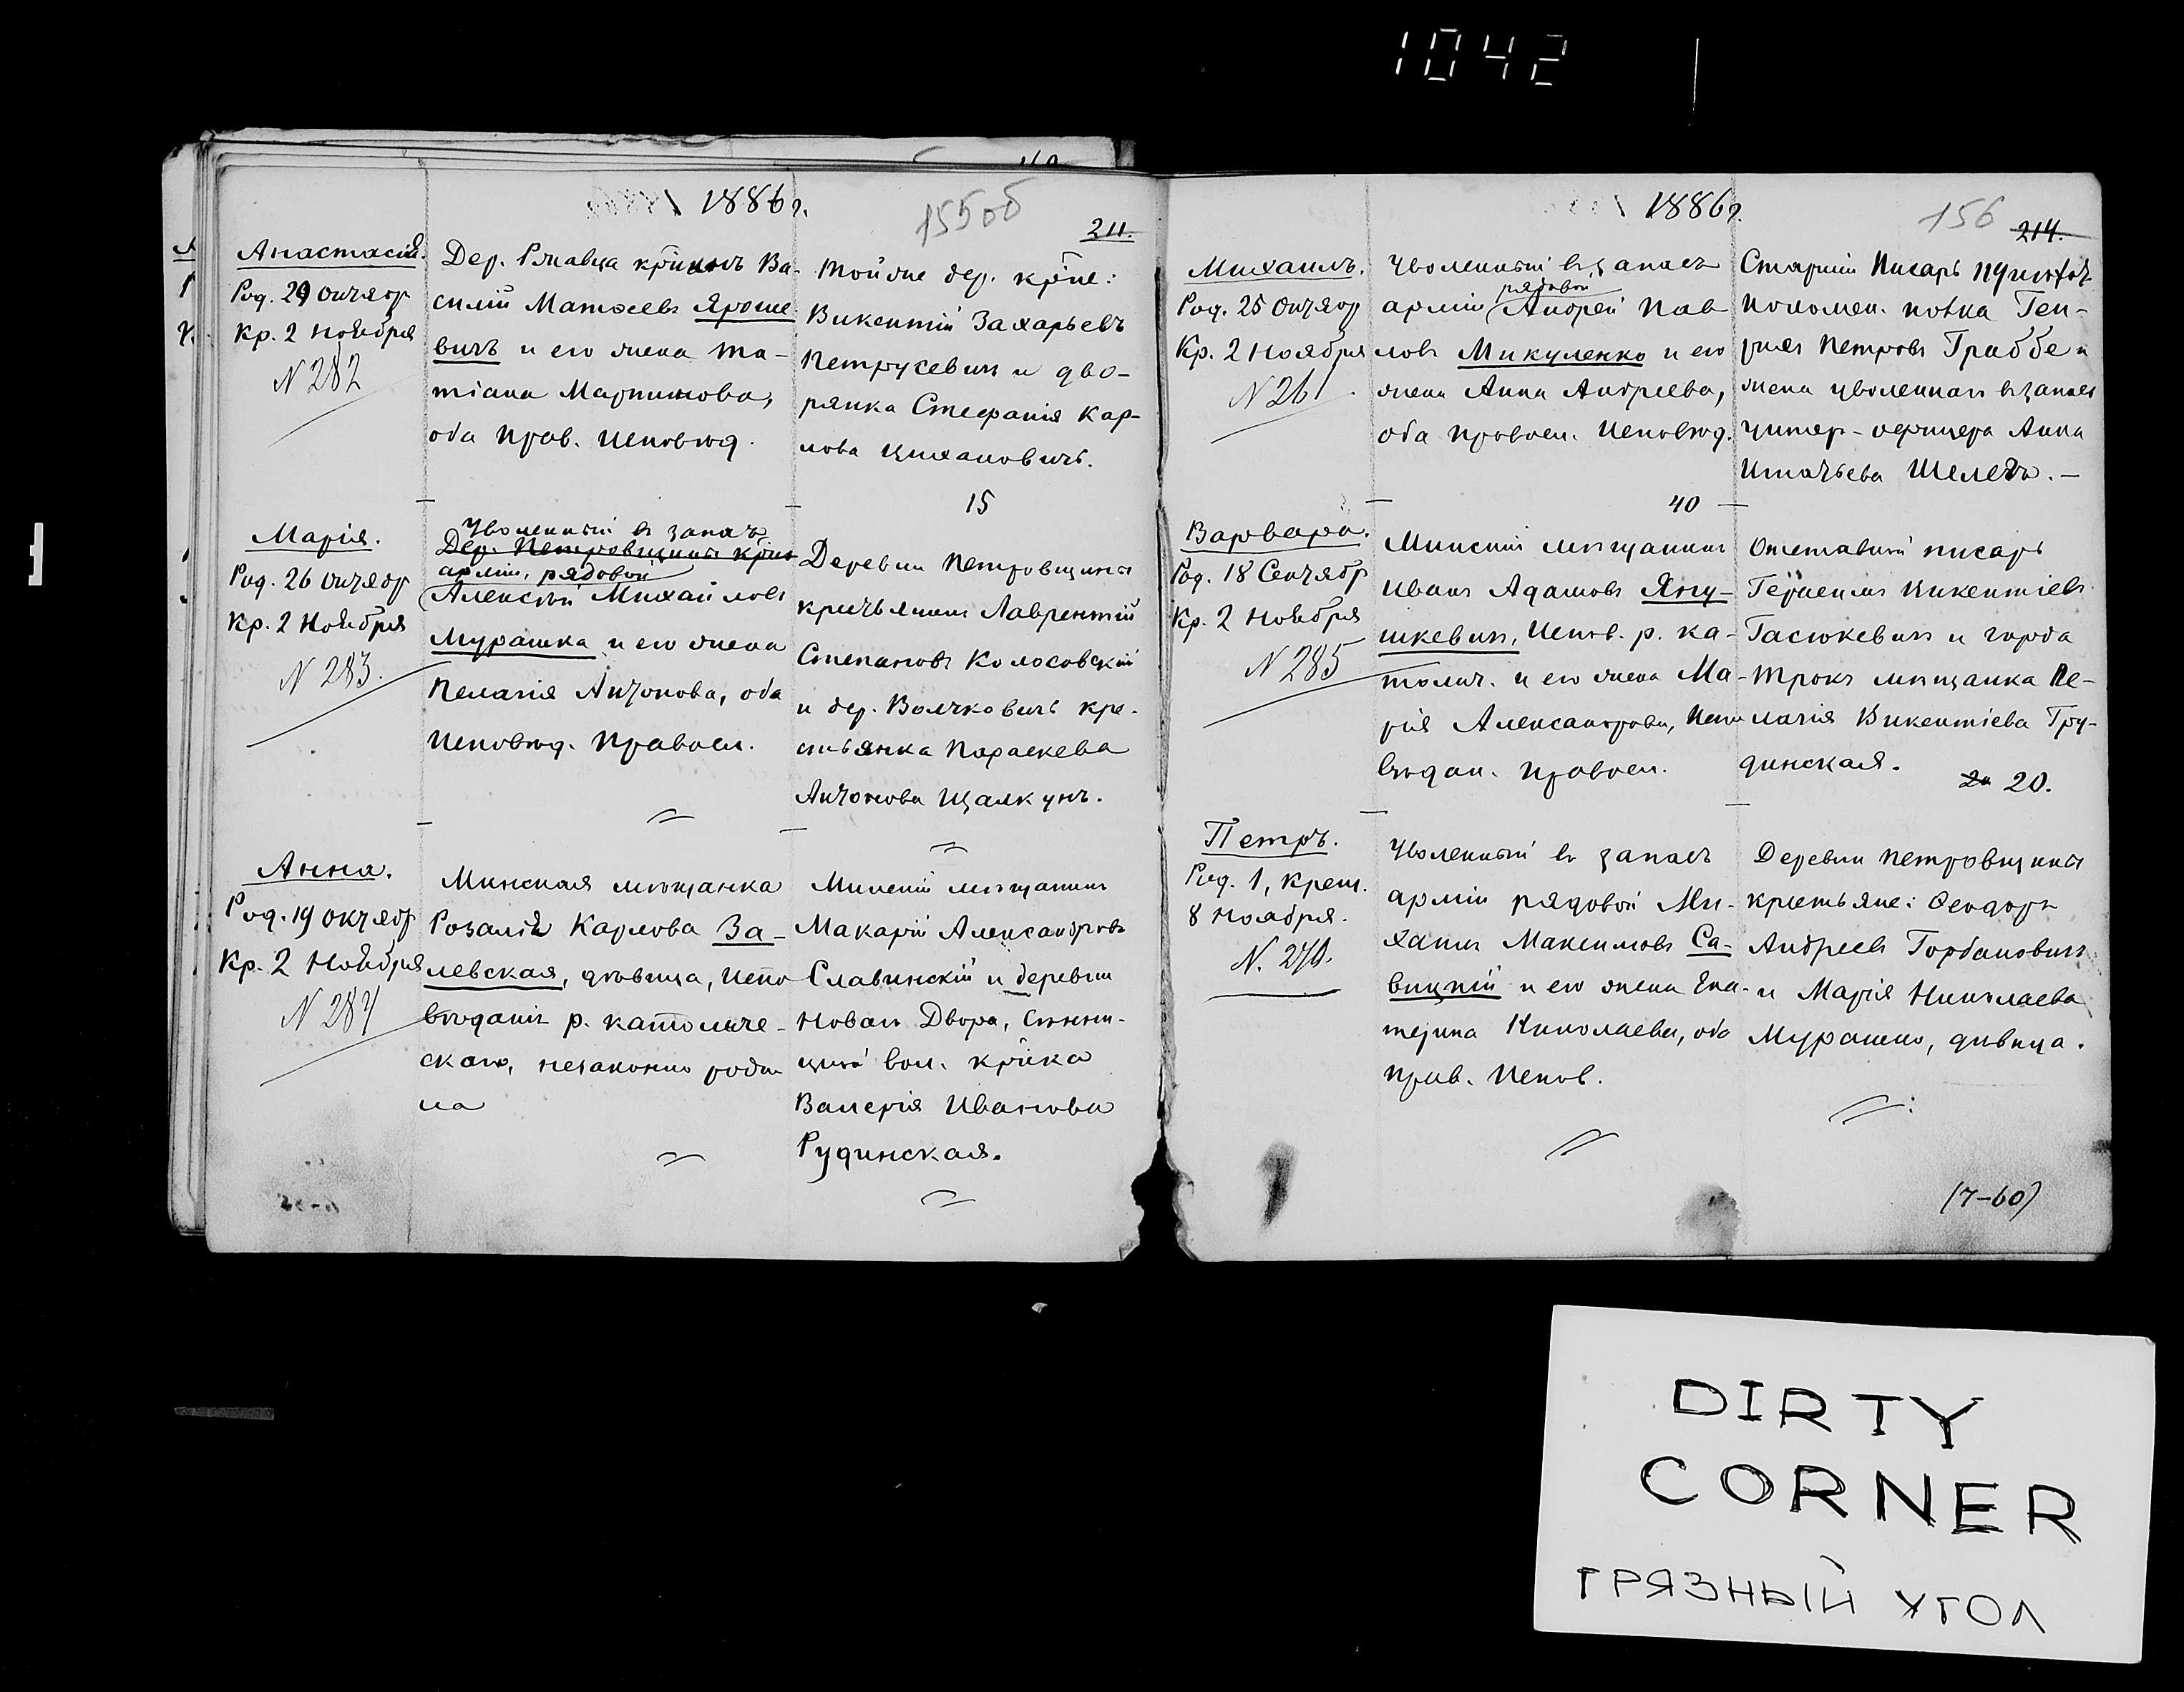 1042
1886 г.
155 об
211.
Анастасія.
Род. 29 Октябр
Кр. 2 Ноября
N 282
Дер. Ржавца кр-нинъ Ва-
силій Матѳеевъ Яроше
вичъ и его жена Та-
тіана Мартинова,
оба прав. исповѣд.
Тойже дер. кр-не:
Викентій Захарьевъ
Петрусевич и дво-
рянка Стефанія Кар-
лова Цихановичъ.
15
Марія.
Род. 26 Октябр
Кр. 2 Ноября
N 283.
Уволенный в запасъ
Дер. Петровщины
арміи, рядовой
Алексѣй Михайловъ
Мурашка и его жена
Пелагія Антонова, оба
исповѣд. правосл.
Деревни Петровщины
крестьянин Лаврентій
Степановъ Колосовскій
и дер. Волчковичъ кре-
стьянка Параскева
Антонова Щалкунъ.
Анна.
Род. 19 Октябр
Кр. 2 Ноября
N 284
Минская мѣщанка
Розалія Карлова За-
левская, дѣвица, испо
вѣданія р. католиче-
скаго, незаконно родил
ла
Минскій мѣщанинъ
Макарій Александровъ
Славинскій и деревни
Новаго Двора,
вол. кр-нка
Валерія Иванова
Рудинская.
1886 г.
156
214.
Михаилъ.
Род. 25 Октябр
Кр. 2 Ноября
N 261
Уволенный въ запасъ
рядовой
арміи Андрей Пав
ловъ Микуленко и его
жена Анна Андреева,
оба правосл. исповѣд.
Старшій Писарь 119 пѣхот.
Коломен. полка Ген-
рихъ Петровъ Граббе и
жена уволеннаго въ запасъ
унтер-офицера Анна
Игнатьева Шелегъ.—
40
Варвара.
Род. 18 Сентябр
Кр. 2 Ноября
N 285
Минскій мѣщанинъ
Иванъ Адамовъ Яну-
шкевич, испов. р. ка-
толич. и его жена Ма-
рія Александрова, испо
вѣдан. правосл.
Отставной писарь
Викентіевъ
Гасюкевич и города
Трокъ мѣщанка Пе-
лагія Викентіева Гру-
динская.
20.
Петръ.
Род. 1, крещ.
8 Ноября.
Уволенный въ запасъ
арміи рядовой Ми-
хаилъ Максимовъ Са-
вицкій и его жена Ека-
терина Николаева, оба
прав. испов.
Деревни Петровщины
крестьяне: Ѳеодоръ
Андреевъ Горбановичъ
и Марія Николаева
Мурашко, дѣвица.
(7-60)
DIRTY
CORNER
ГРЯЗНЫЙ УГОЛ